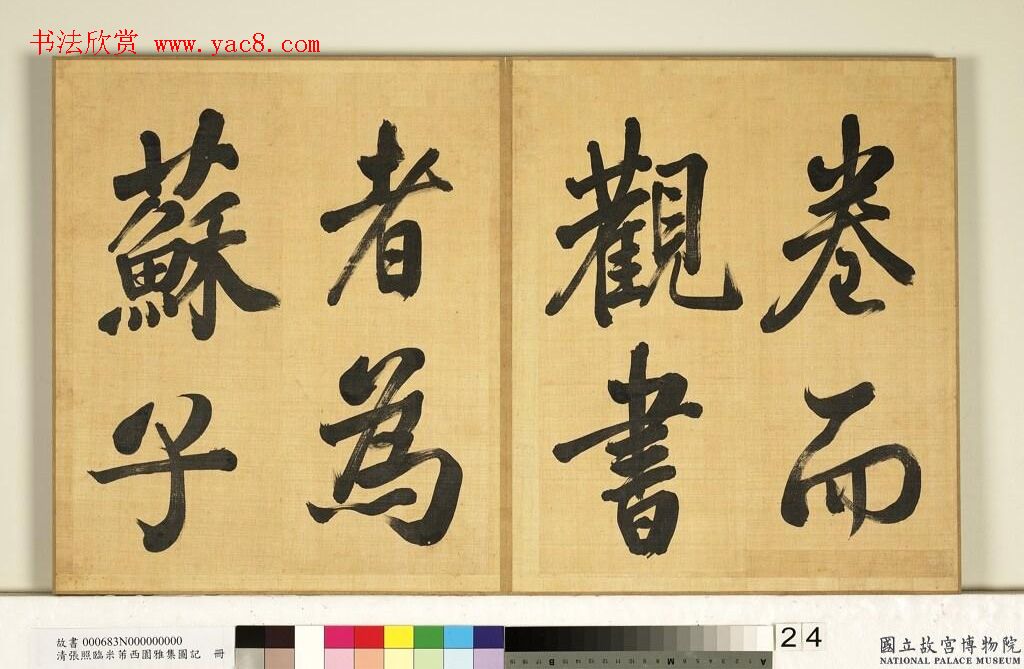 书法欣赏 www.yac8.com
卷而
觀書
者為
蘇子
故書 000683N000000000
清張照臨米芾西園雅集圖記 冊
B M A
24
國立故宮博物院
NATIONAL PALACE MUSEUM